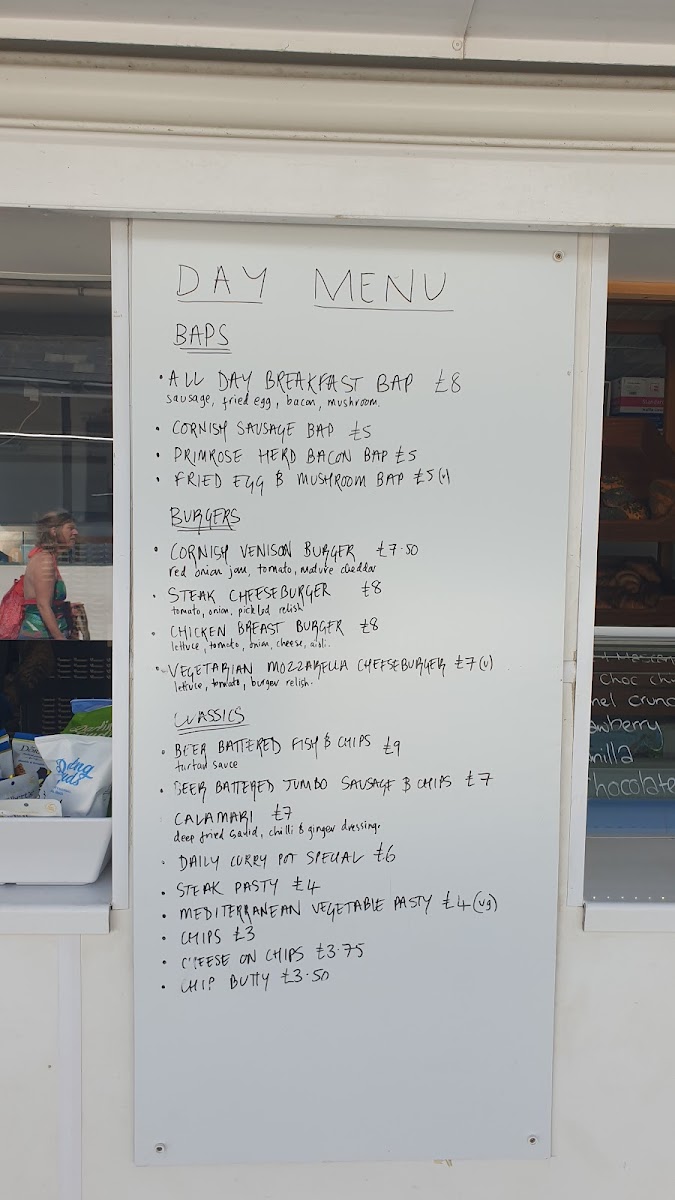 DAY MENU
BAPS
• ALL DAY BREAKFAST BAP £8
sausage, fried egg, bacon, mushroom.
• CORNISH SAUSAGE BAP £5
• PRIMROSE HERD BACON BAP £5
• FRIED EGG & MUSHROOM BAP £5 (v)
BURGERS
• CORNISH VENISON BURGER £7.50
red onion jam, tomato, mature cheddar
• STEAK CHEESEBURGER £8
tomato, onion, pickled relish
• CHICKEN BREAST BURGER £8
lettuce, tomato, onion, cheese, aioli.
• VEGETARIAN MOZZARELLA CHEESEBURGER £7 (v)
lettuce, tomato, burger relish.
CLASSICS
• BEER BATTERED FISH & CHIPS £9
tartar sauce
• BEER BATTERED JUMBO SAUSAGE & CHIPS £7
CALAMARI £7
deep fried squid, chilli & ginger dressing.
• DAILY CURRY POT SPECIAL £6
• STEAK PASTY £4
• MEDITERRANEAN VEGETABLE PASTY £4 (vg)
• CHIPS £3
• CHEESE ON CHIPS £3.75
• CHIP BUTTY £3.50
Choc
nilla
chocolate